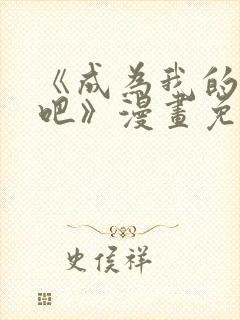 《成为我的
吧》漫畫免
史侯祥